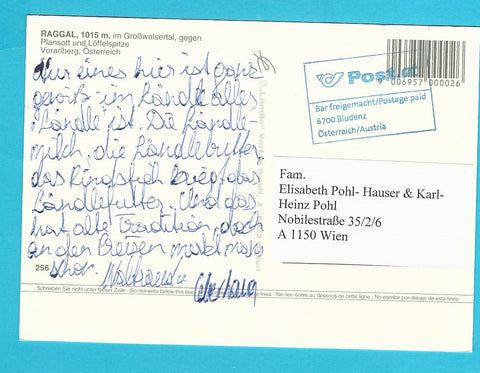 RAGGAL, 1015 m, im Großwalsertal, gegen
Plansott und Löffelspitze
Vorarlberg, Österreich
Nur eines hier ist ganz
gewiß im Ländle alles
"Ländle" ist. Die Ländle-
milch, die Ländlebutter
das Rindvieh kriegt das
Ländlefutter. Und das
hat alte Tradition, doch
an den Preisen merkt man's
schon.
256
Post.at
Bar freigemacht/Postage paid
6700 Bludenz
Österreich/Austria
006957 000026
Fam.
Elisabeth Pohl- Hauser & Karl-
Heinz Pohl
Nobilestraße 35/2/6
A 1150 Wien
Schreiben Sie nicht unter dieser Zeile - Do not write below this line - Ne rien écrire au dessous de cette ligne - No escribir por debajo de esta linea